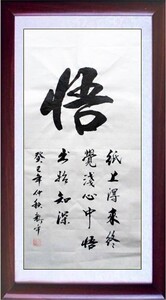 悟
紙上得来終
覺淺心中悟
出始知深
癸巳年仲秋